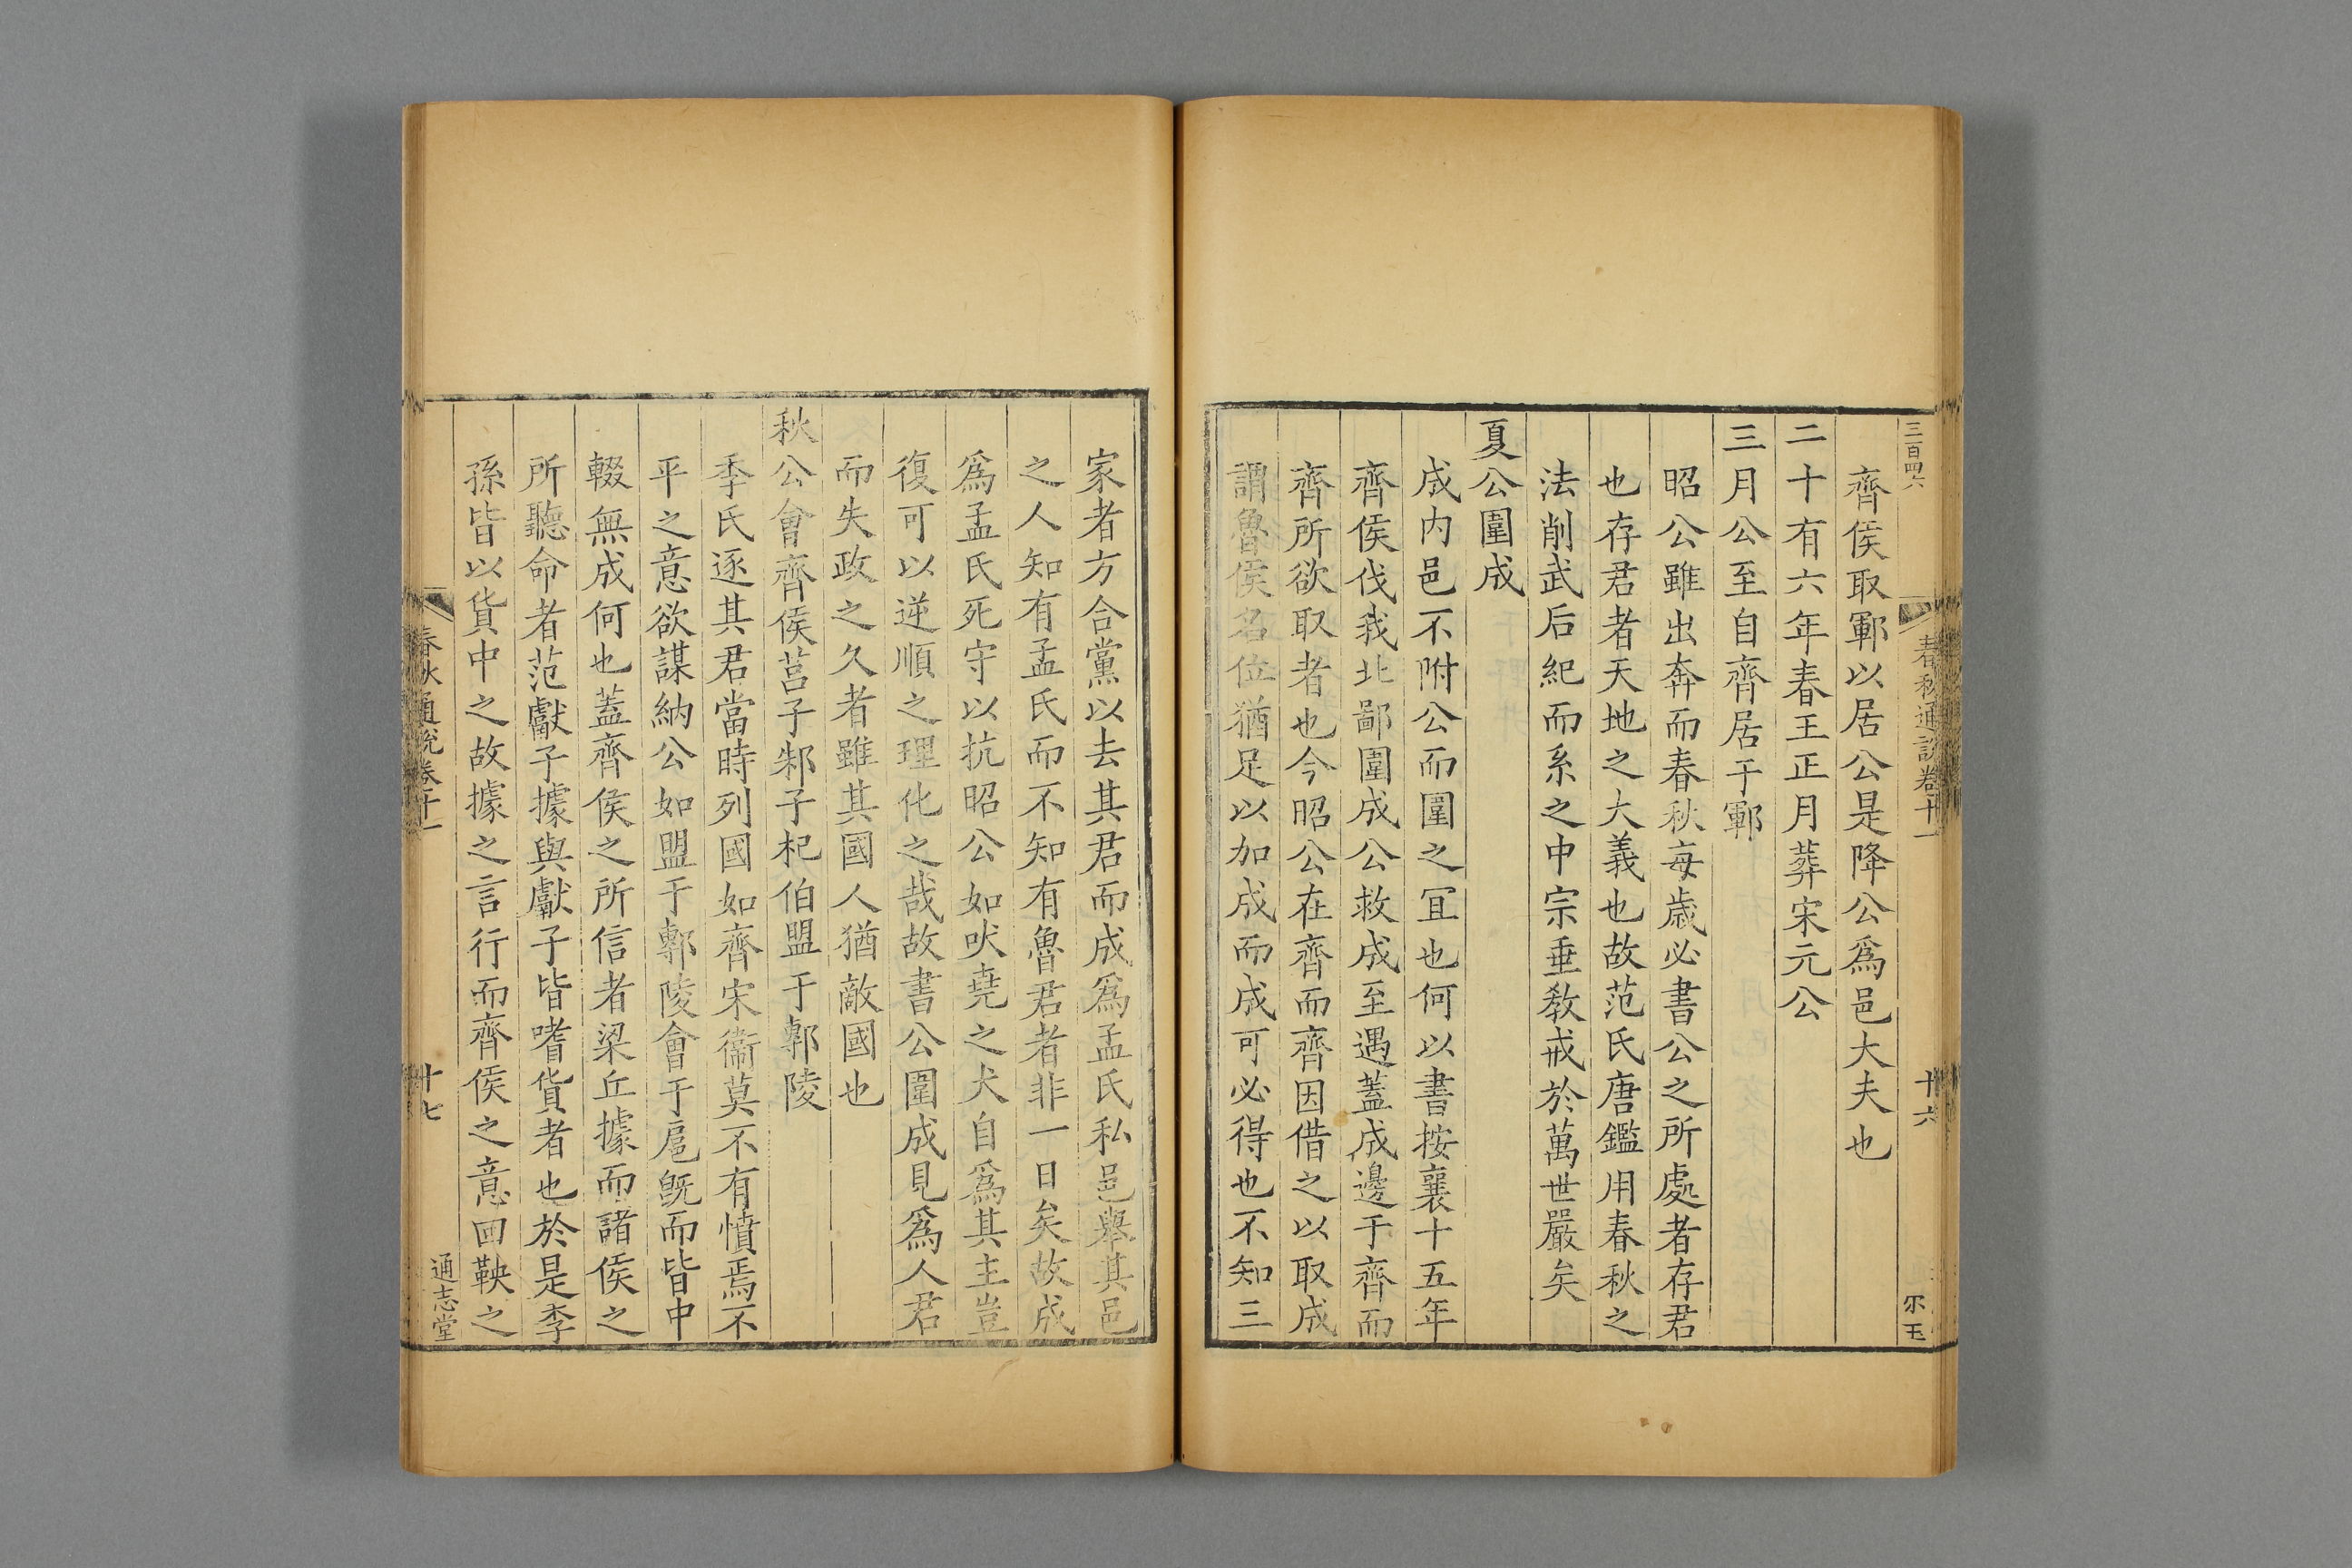 三百四六
春秋通說卷十一
十六
尔玉
齊侯取鄆以居公是降公爲邑大夫也
二十有六年春王正月葬宋元公
三月公至自齊居于鄆
昭公雖出奔而春秋每歲必書公之所處者存君
也存君者天地之大義也故范氏唐鑑用春秋之
法削武后紀而系之中宗垂敎戒於萬世嚴矣
夏公圍成
成内邑不附公而圍之冝也何以書按襄十五年
齊侯伐我北鄙圍成公救成至遇蓋成邊于齊而
齊所欲取者也今昭公在齊而齊因借之以取成
謂魯侯名位猶足以加成而成可必得也不知三
家者方合黨以去其君而成爲孟氏私邑舉其邑
之人知有孟氏而不知有魯君者非一日矣故成
爲孟氏死守以抗昭公如吠堯之犬自爲其主豈
復可以逆順之理化之哉故書公圍成見爲人君
而失政之久者雖其國人猶敵國也
秋公會齊侯莒子邾子杞伯盟于鄟陵
季氏逐其君當時列國如齊宋衞莫不有憤焉不
平之意欲謀納公如盟于鄟陵會于扈旣而皆中
輟無成何也蓋齊侯之所信者梁丘據而諸侯之
所聽命者范獻子據與獻子皆嗜貨者也於是季
孫皆以貨中之故據之言行而齊侯之意回鞅之
春秋通說卷十一
十七
通志堂